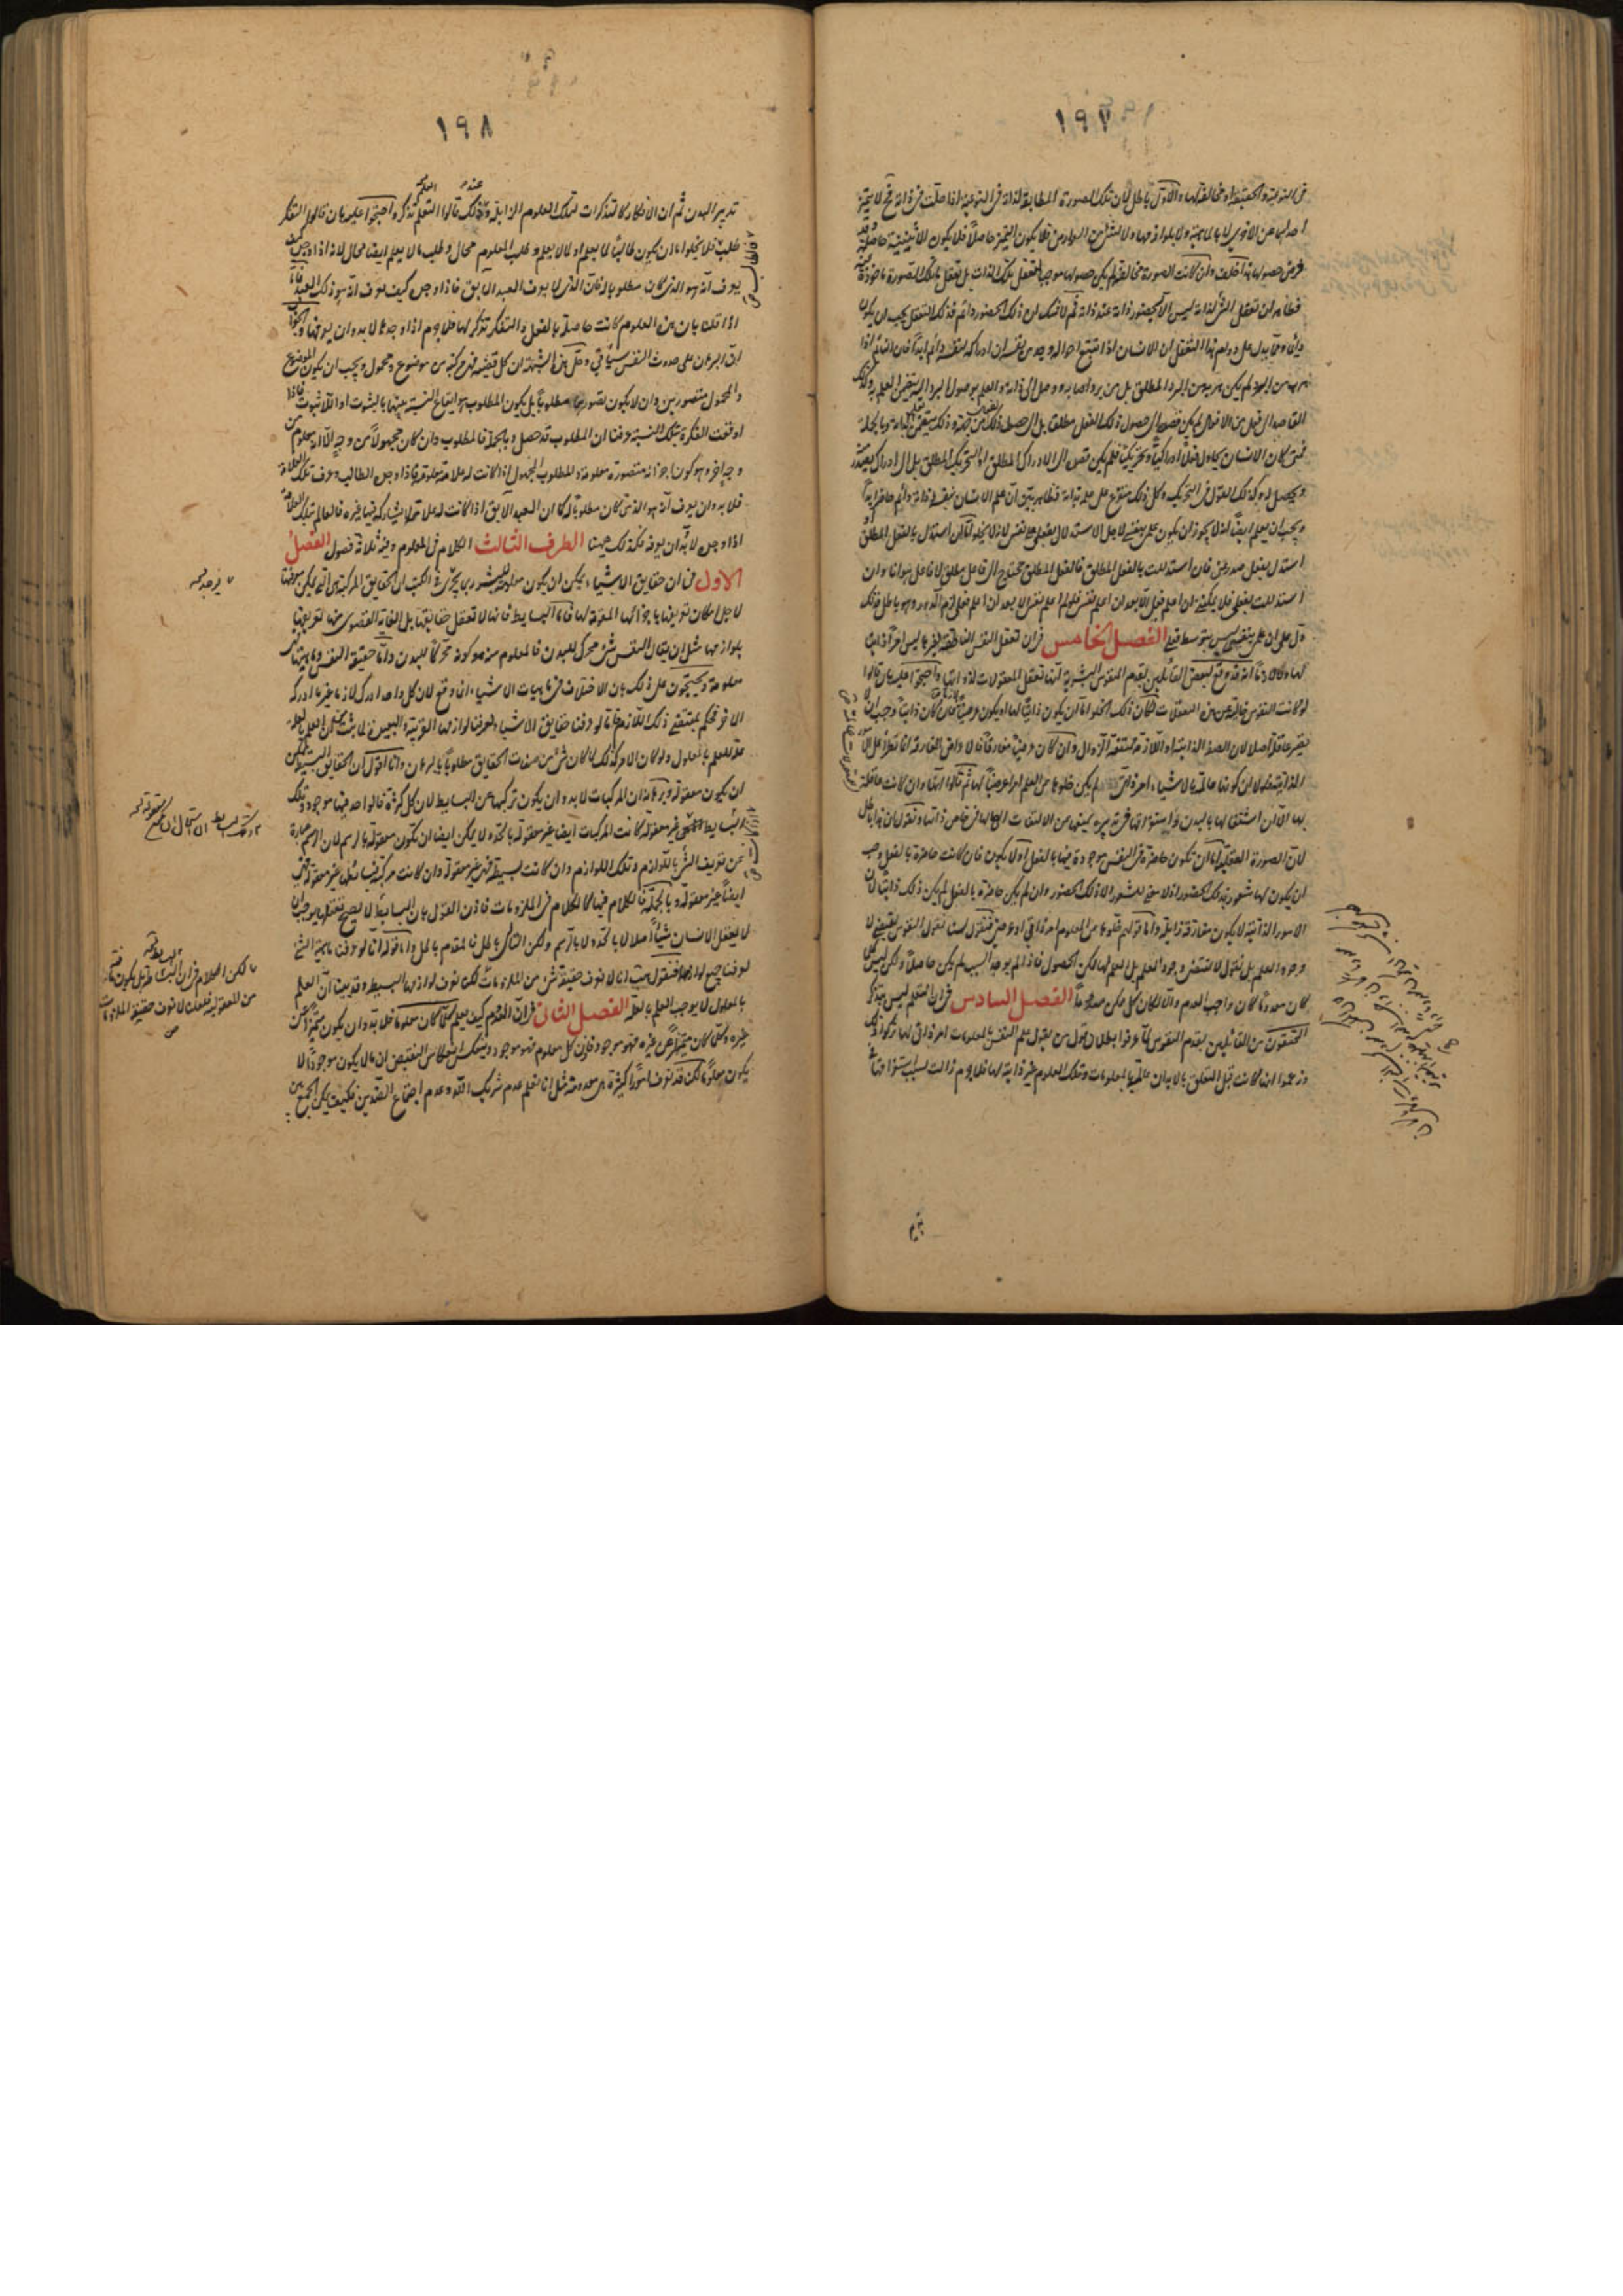 ١٩٧
فى النوعية والحقيقة او مخالفة لها والاول باطل لان تلك الصورة المطابقة لذاته فى النوعية اذا حلت فى ذاته فح لا يتميز
احدهما عن الاخرى لا بالماهية ولا بلوازمها ولا بشئ من العوارض فلا يكون التميز حاصلا فلا يكون الاثنينية حاصلة وقد
فرض حصولها هذا خلف وان كانت الصورة مخالفة لم يكن حصولها موجبا لتعقل تلك الذات بل تعقل ما تلك الصورة ماخوذة منه
فظاهر ان تعقل الشئ لذاته ليس الا حضور ذاته عند ذاته ثم لا شك ان ذلك الحضور دائم فذلك التعقل يجب ان يكون
دائما ومما يدل على دوام هذا التعقل ان الانسان اذا تتبع احواله وجد من نفسه ان ادراكه لنفسه دائم ابدا فان النائم اذا
هرب من البرد لم يكن هربه من البرد المطلق بل من برد اصابه ووصل الى ذاته والعلم بوصول البرد اليه يتضمن العلم به وكذلك
القاصد الى فعل من الافعال لم يكن قصده الى حصول ذلك الفعل مطلقا بل الى حصول ذلك من جهته وذلك يتضمن علمه بذاته وبالجملة
فمتى كان الانسان يحاول فعلا ادراكيا او تحريكيا فلم يكن قصده الى الادراك المطلق او التحريك المطلق بل الى ادراك يصدر
ويحصل له وكذلك القول فى التحريك وكل ذلك متفرع على علمه بذاته فظاهر بين ان علم الانسان بنفسه دائم حاضر ابدا
ويجب ان يعلم ايضا انه لا يجوز ان يكون علمى بنفسى لاجل الاستدلال بفعلى على نفسى لانه لا يخلو اما ان استدل بالفعل المطلق او
استدل بفعل صدر منى فان استدللت بالفعل المطلق فالفعل المطلق محتاج الى فاعل مطلق لا فاعل هو انا وان
استدللت بفعلى فلا يمكننى ان اعلم فعلى الا بعد ان اعلم نفسى فلو لم اعلم نفسى الا بعد ان اعلم فعلى لزم الدور وهو باطل فذلك
دل على ان علمى بنفسى ليس بتوسط فعلى الفصل الخامس فى ان تعقل النفس الناطقة لغيرها ليس امرا ذاتيا
لها ولا لازما انه قد وقع لبعض القائلين بقدم النفوس البشرية انها تعقل المعقولات لذواتها واحتجوا عليه بان قالوا
لو كانت النفوس خالية عن هذه التعقلات لكان ذلك الخلو اما ان يكون ذاتيا لها او يكون عرضيا فان كان ذاتيا وجب ان لا
يصير عاقلة اصلا لان الصفة الذاتية او اللازمة ممتنعة الزوال وان كان عرضيا مفارقا فالاعراض المفارقة انما تطرأ على الامور
الذاتية فلولا ان كونها عالمة بالاشياء امر ذاتى لم يكن خلوها عن العلم امرا عرضيا لها ثم قالوا انها وان كانت عاقلة
لها الا ان اشتغالها بالبدن واستغراقها فى تدبيره يمنعها عن الالتفات الى مالها فى خاص ذاتها ونقول ان هذا باطل
لان الصورة العقلية اما ان تكون حاضرة فى النفس موجودة فيها بالفعل او لا يكون فان كانت حاضرة بالفعل وجب
ان يكون لها شعور بذلك الحضور اذ لا معنى للشعور الا ذلك الحضور وان لم يكن حاضرة بالفعل لم يكن ذلك ذاتيا لان
الامور الذاتية لا يكون مفارقة زايلة واما قولهم خلوها عن العلوم امر ذاتى او عرضى فنقول لسنا نقول النفوس تقتضى لا
وجود العلم بل نقول لا تقتضى وجود العلم بل العلم لها ممكن الحصول فاذا لم يوجد السبب لم يكن حاصلا ولكن ليس كلما
كان معدوما كان واجب العدم والا لكان كل ممكن معدوما الفصل السادس فى ان التعلم ليس بتذكر
المحققون من القائلين بقدم النفوس لما عرفوا بطلان قول من يقول علم النفس بالمعلومات امر ذاتى لها تركوا ذلك
وزعموا انها كانت قبل التعلق بالابدان عالمة بالمعلومات وتلك العلوم غير ذاتية لها فلا جرم زالت بسبب استغراقها فى
١٩٨
تدبير البدن ثم ان الافكار كالتذكرات لتلك العلوم الزايلة وعند ذلك قالوا التعلم تذكر واحتجوا عليه بان قالوا التفكر
طلب فلا يخلوا اما ان يكون طالبا لما يعلم او لما لا يعلم وطلب المعلوم محال وطلب ما لا يعلم ايضا محال لانه اذا وجده كيف
يعرف انه هو الذى كان مطلوبا له فان الذى لا يعرف العبد الآبق فاذا وجده كيف يعرف انه هو ذلك العبد فاما
اذا قلنا بان هذه العلوم كانت حاصلة بالفعل والتفكر تذكر لها فلا جرم اذا وجدها لا بد وان يعرفها والجواب
ان البرهان على حدوث النفس سيأتى وحل هذه الشبهة ان كل قضية فهى مركبة من موضوع ومحمول ويجب ان يكون الموضوع
والمحمول متصورين وان لا يكون تصورهما مطلوبا بل يكون المطلوب هو ايقاع النسبة بينهما بالثبوت او اللا ثبوت فاذا
اوقعت الفكرة تلك النسبة عرفنا ان المطلوب قد حصل وبالجملة فالمطلوب وان كان مجهولا من وجه الا انه معلوم من
وجه اخر وهو كون اجزائه متصورة معلومة والمطلوب المجهول اذا كانت له علامة معلومة فاذا وجده الطالب وعرف تلك العلامة
فلا بد وان يعرف انه هو الذى كان مطلوبا له كما ان العبد الآبق اذا كانت له علامة لا يشاركه فيها غيره فالعالم بتلك العلامة
اذا وجده لا بد ان يعرفه فكذلك ههنا الطرف الثالث الكلام فى المعلوم وفيه ثلاثة فصول الفصل
الاول فى ان حقايق الاشياء يمكن ان يكون معلومة للبشر ربما يجرى فى الكتب ان الحقايق المركبة هى التى يمكن معرفتها
لاجل امكان تعريفها باجزائها المقومة لها فاما البسايط فانها لا تعقل حقايقها بل الغاية القصوى منها تعريفها
بلوازمها مثل ان يقال النفس شئ محرك للبدن فالمعلوم منه هو كونه محركا للبدن واما حقيقة النفس وماهيتها غير
معلومة ويحتجون على ذلك بان الاختلاف فى ماهيات الاشياء انما وقع لان كل واحد ادرك لازما غير ما ادركه
الاخر فحكم بمقتضى ذلك اللازم فاما لو عرفنا حقايق الاشياء لعرفنا لوازمها القريبة والبعيدة لما ثبت ان العلم بالعلة
علة للعلم بالمعلول ولو كان الامر كذلك لما كان شئ من صفات الحقايق مطلوبا بالبرهان وانا اقول ان الحقايق البسيطة يمكن
ان يكون معقولة وبرهانه ان المركبات لا بد وان يكون تركبها عن البسايط لان كل كثرة فالواحد فيها موجود وتلك
البسايط غير معقولة كانت المركبات ايضا غير معقولة بالحد ولا يمكن ايضا ان تكون معقولة بالرسم لان الرسم عبارة
عن تعريف الشئ باللوازم وتلك اللوازم وان كانت بسيطة فهى غير معقولة وان كانت مركبة فبسائطها غير معقولة فهى
ايضا غير معقولة وبالجملة فالكلام فيها كالكلام فى الملزومات فاذن القول بان البسايط لا يصح تعقلها يوجب ان
لا يعقل الانسان شيئا اصلا لا بالحد ولا بالرسم ولكن التالى باطل فالمقدم باطل واما قوله انا لو عرفنا ماهية الشئ
لعرفنا جميع لوازمها فنقول هب انا لا نعرف حقيقة شئ من الملزومات لكن نعرف لوازمها البسيطة وقد بينا ان العلم
بالمعلول لا يوجب العلم بالعلة الفصل الثانى فى ان المعدوم كيف يعلم كلما كان معلوما فلا بد وان يكون متميزا عن
غيره وكلما كان متميزا عن غيره فهو موجود فاذن كل معلوم فهو موجود وينعكس انعكاس النقيض ان ما لا يكون موجودا لا
يكون معلوما لكنا قد نعرف امورا كثيرة هى معدومة مثل انا نعلم عدم شريك الله وعدم اجتماع الضدين فكيف يمكن الجمع بين